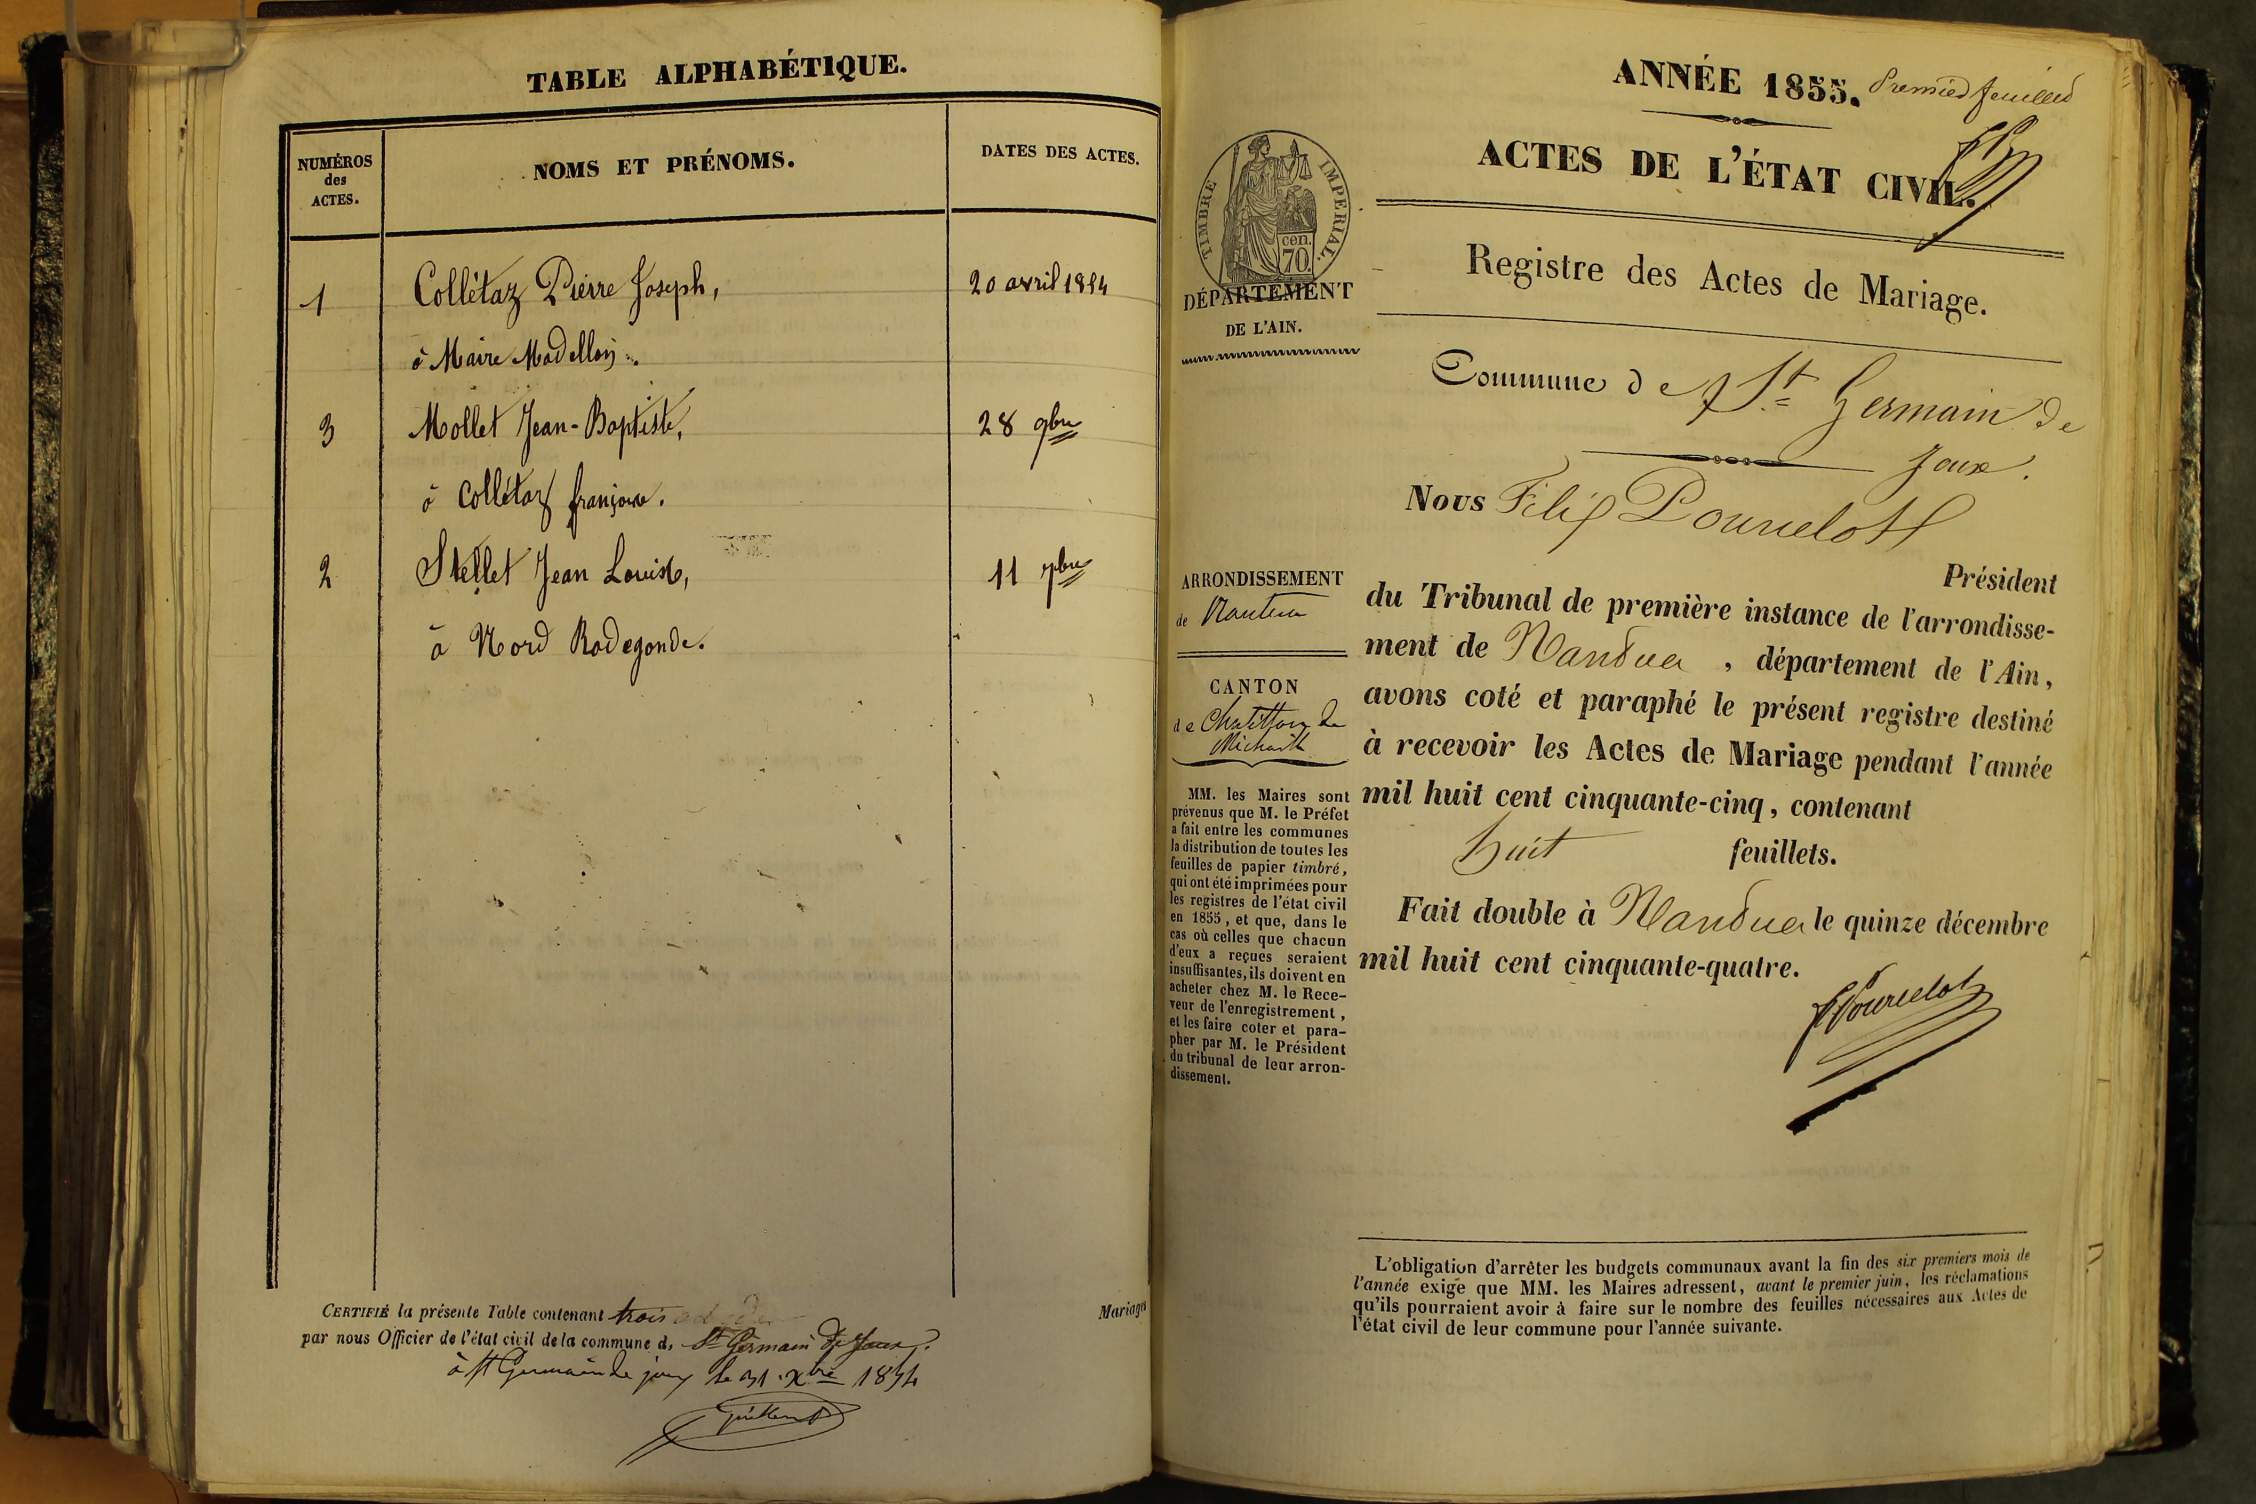 TABLE ALPHABÉTIQUE.
NUMÉROS
des
ACTES.
NOMS ET PRÉNOMS.
DATES DES ACTES.
1 Collétaz Pierre Joseph, 20 avril 1854
à Maire Madellon.
3 Mollet Jean-Baptiste, 28 9bre
à Collétaz françoise.
2 Stellet Jean Louis, 11 7bre
à Nord Radegonde.
CERTIFIÉ la présente Table contenant trois Mariages
par nous Officier de l'état civil de la commune d. St Germain de Joux.
à St Germain de joux le 31 Xbre 1854
ANNÉE 1855. Premier feuillet
ACTES DE L'ÉTAT CIVIL.
TIMBRE IMPERIAL.
cen.
70.
DÉPARTEMENT
DE L'AIN.
Registre des Actes de Mariage.
Commune de St Germain de
Joux.
Nous Félix Pourcelot
Président
du Tribunal de première instance de l'arrondisse-
ment de Nantua, département de l'Ain,
avons coté et paraphé le présent registre destiné
à recevoir les Actes de Mariage pendant l'année
mil huit cent cinquante-cinq, contenant
huit feuillets.
Fait double à Nantua le quinze décembre
mil huit cent cinquante-quatre.
F Pourcelot
ARRONDISSEMENT
de Nantua
CANTON
de Chatillon de
Michaille
MM. les Maires sont
prévenus que M. le Préfet
a fait entre les communes
la distribution de toutes les
feuilles de papier timbré,
qui ont été imprimées pour
les registres de l'état civil
en 1855, et que, dans le
cas où celles que chacun
d'eux a reçues seraient
insuffisantes, ils doivent en
acheter chez M. le Rece-
veur de l'enregistrement,
et les faire coter et para-
pher par M. le Président
du tribunal de leur arron-
dissement.
L'obligation d'arrêter les budgets communaux avant la fin des six premiers mois de
l'année exige que MM. les Maires adressent, avant le premier juin, les réclamations
qu'ils pourraient avoir à faire sur le nombre des feuilles nécessaires aux Actes de
l'état civil de leur commune pour l'année suivante.